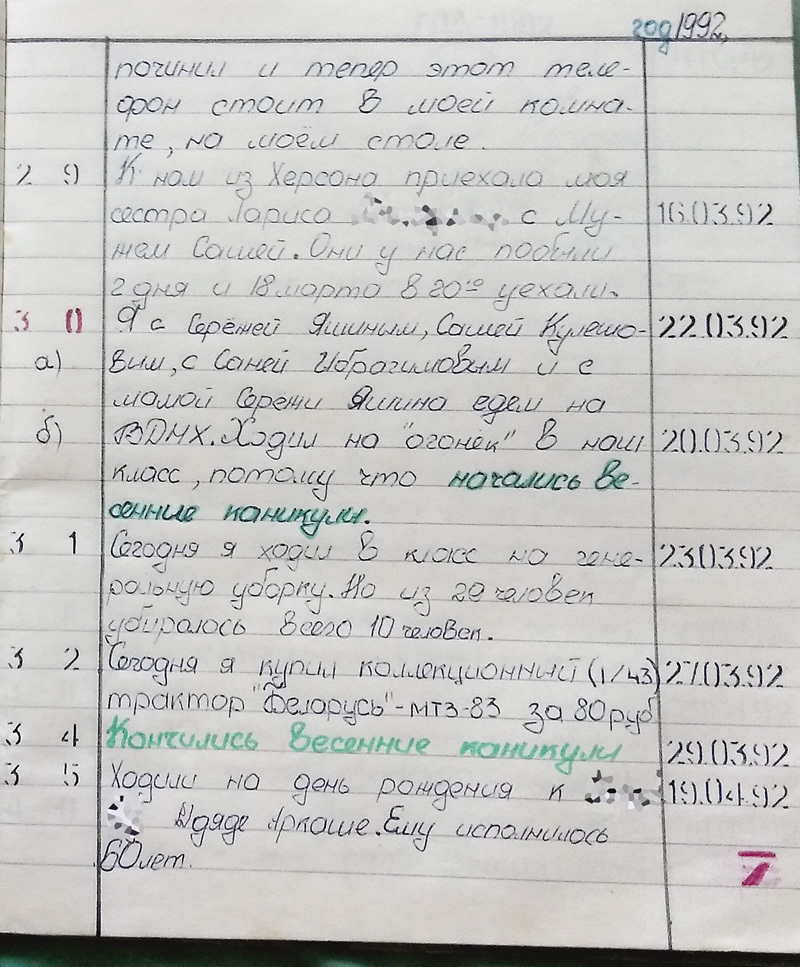 год 1992,
починил и тепер этот теле-
фон стоит в моей комна-
те, на моём столе.
2 9 К нам из Херсона приехала моя
сестра Лариса с Му- 16.03.92
жем Сашей. Они у нас побыли
2 дня и 18 марта в 20:00 уехали.
3 0 Я с Серёжей Яшиным, Сашей Кулешо- 22.03.92
а) вим, с Саней Ибрагимовым и с
мамой Серёжи Яшина едем на
б) ВДНХ. Ходил на "огонёк" в наш 20.03.92
класс, потому что начались ве-
сенние каникулы.
3 1 Сегодня я ходил в класс на гене- 23.03.92
ральную уборку. Но из 29 человек
убиралось всего 10 человек.
3 2 Сегодня я купил коллекционный (1/43) 27.03.92
трактор "Беларусь"-мтз-83 за 80 руб
3 4 Кончились весенние каникулы 29.03.92
3 5 Ходили на день рождения к 19.04.92
дяде Аркаше. Ему исполнилось
60 лет.
7